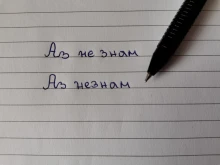 Аз не знам
Аз незнам